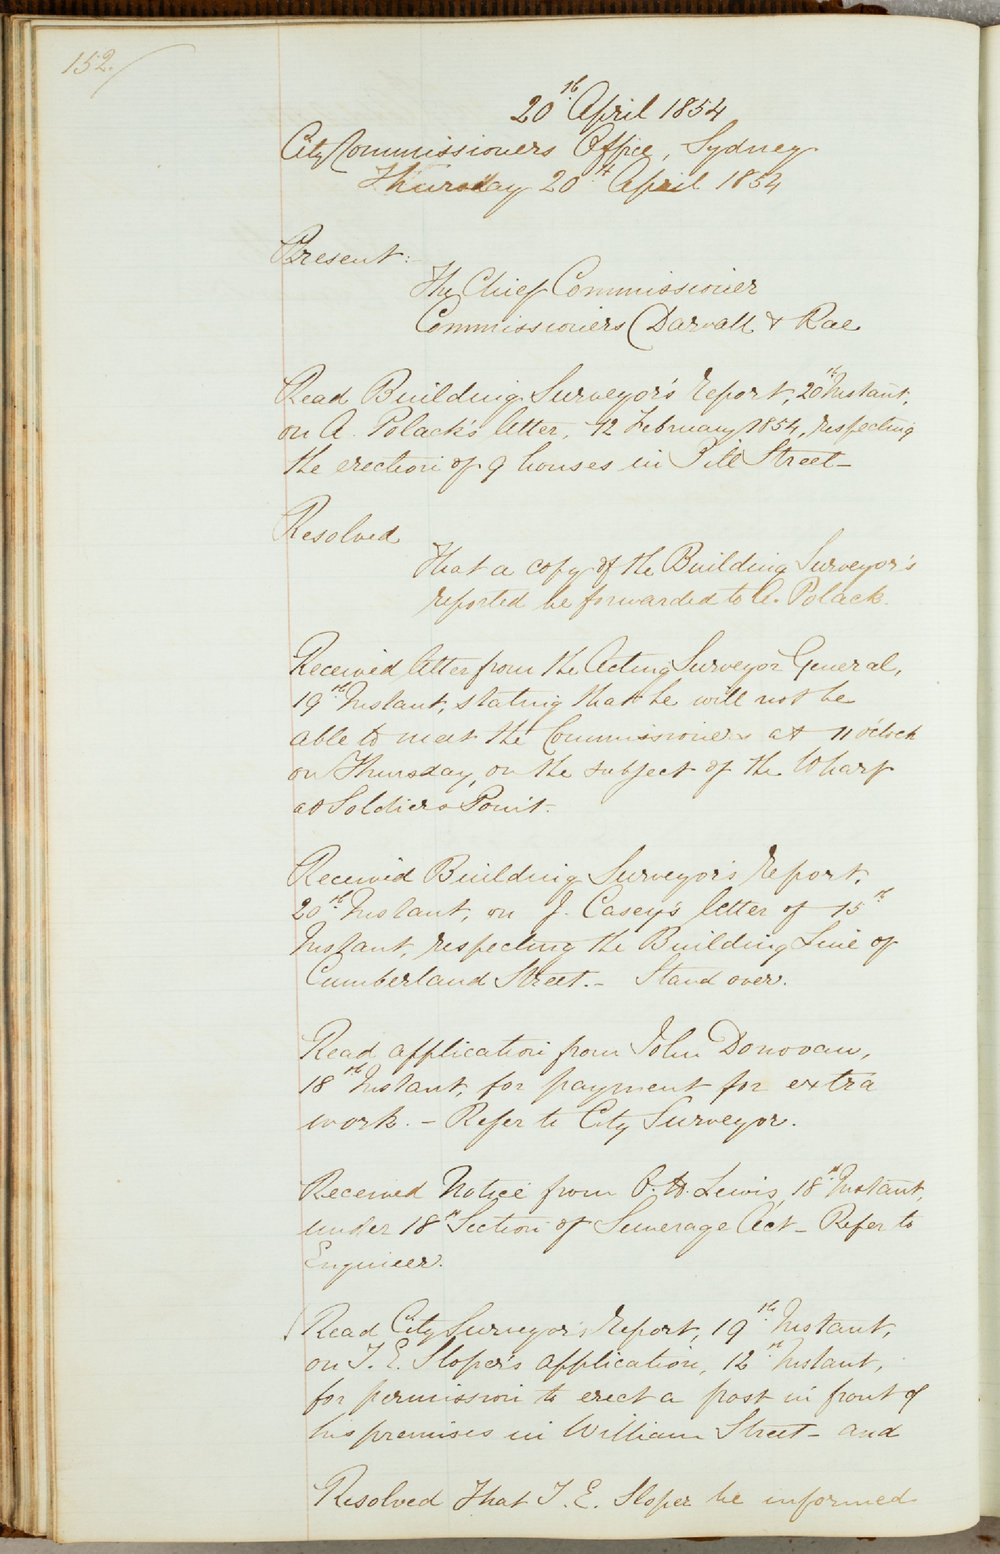 152.
20th April 1854
City Commissioners Office, Sydney
Thursday 20th April 1854
Present:
The Chief Commissioner
Commissioners Darvall & Rae
Read Building Surveyor's report, 20th Instant,
on A. Polack's letter, 12 February 1854, respecting
the erection of 9 houses in Pitt Street -
Resolved
That a copy of the Building Surveyor's
reported be forwarded to A. Polack.
Received letter from the Acting Surveyor General,
19th Instant, stating that he will not be
able to meet the Commissioners at 11 o'clock
on Thursday, on the subject of the Wharf
at Soldiers Point.
Received Building Surveyor's report,
20th Instant, on J. Casey's letter of 15th
Instant, respecting the Building Line of
Cumberland Street. - Stand over.
Read application from John Donovan,
18th Instant, for payment for extra
work. - Refer to City Surveyor.
Received Notice from O. H. Lewis, 18th Instant,
under 18th Section of Sewerage Act - Refer to
Engineer.
Read City Surveyor's Report, 19th Instant,
on T. E. Sloper's application, 12th Instant,
for permission to erect a post in front of
his premises in William Street - and
Resolved That T. E. Sloper be informed